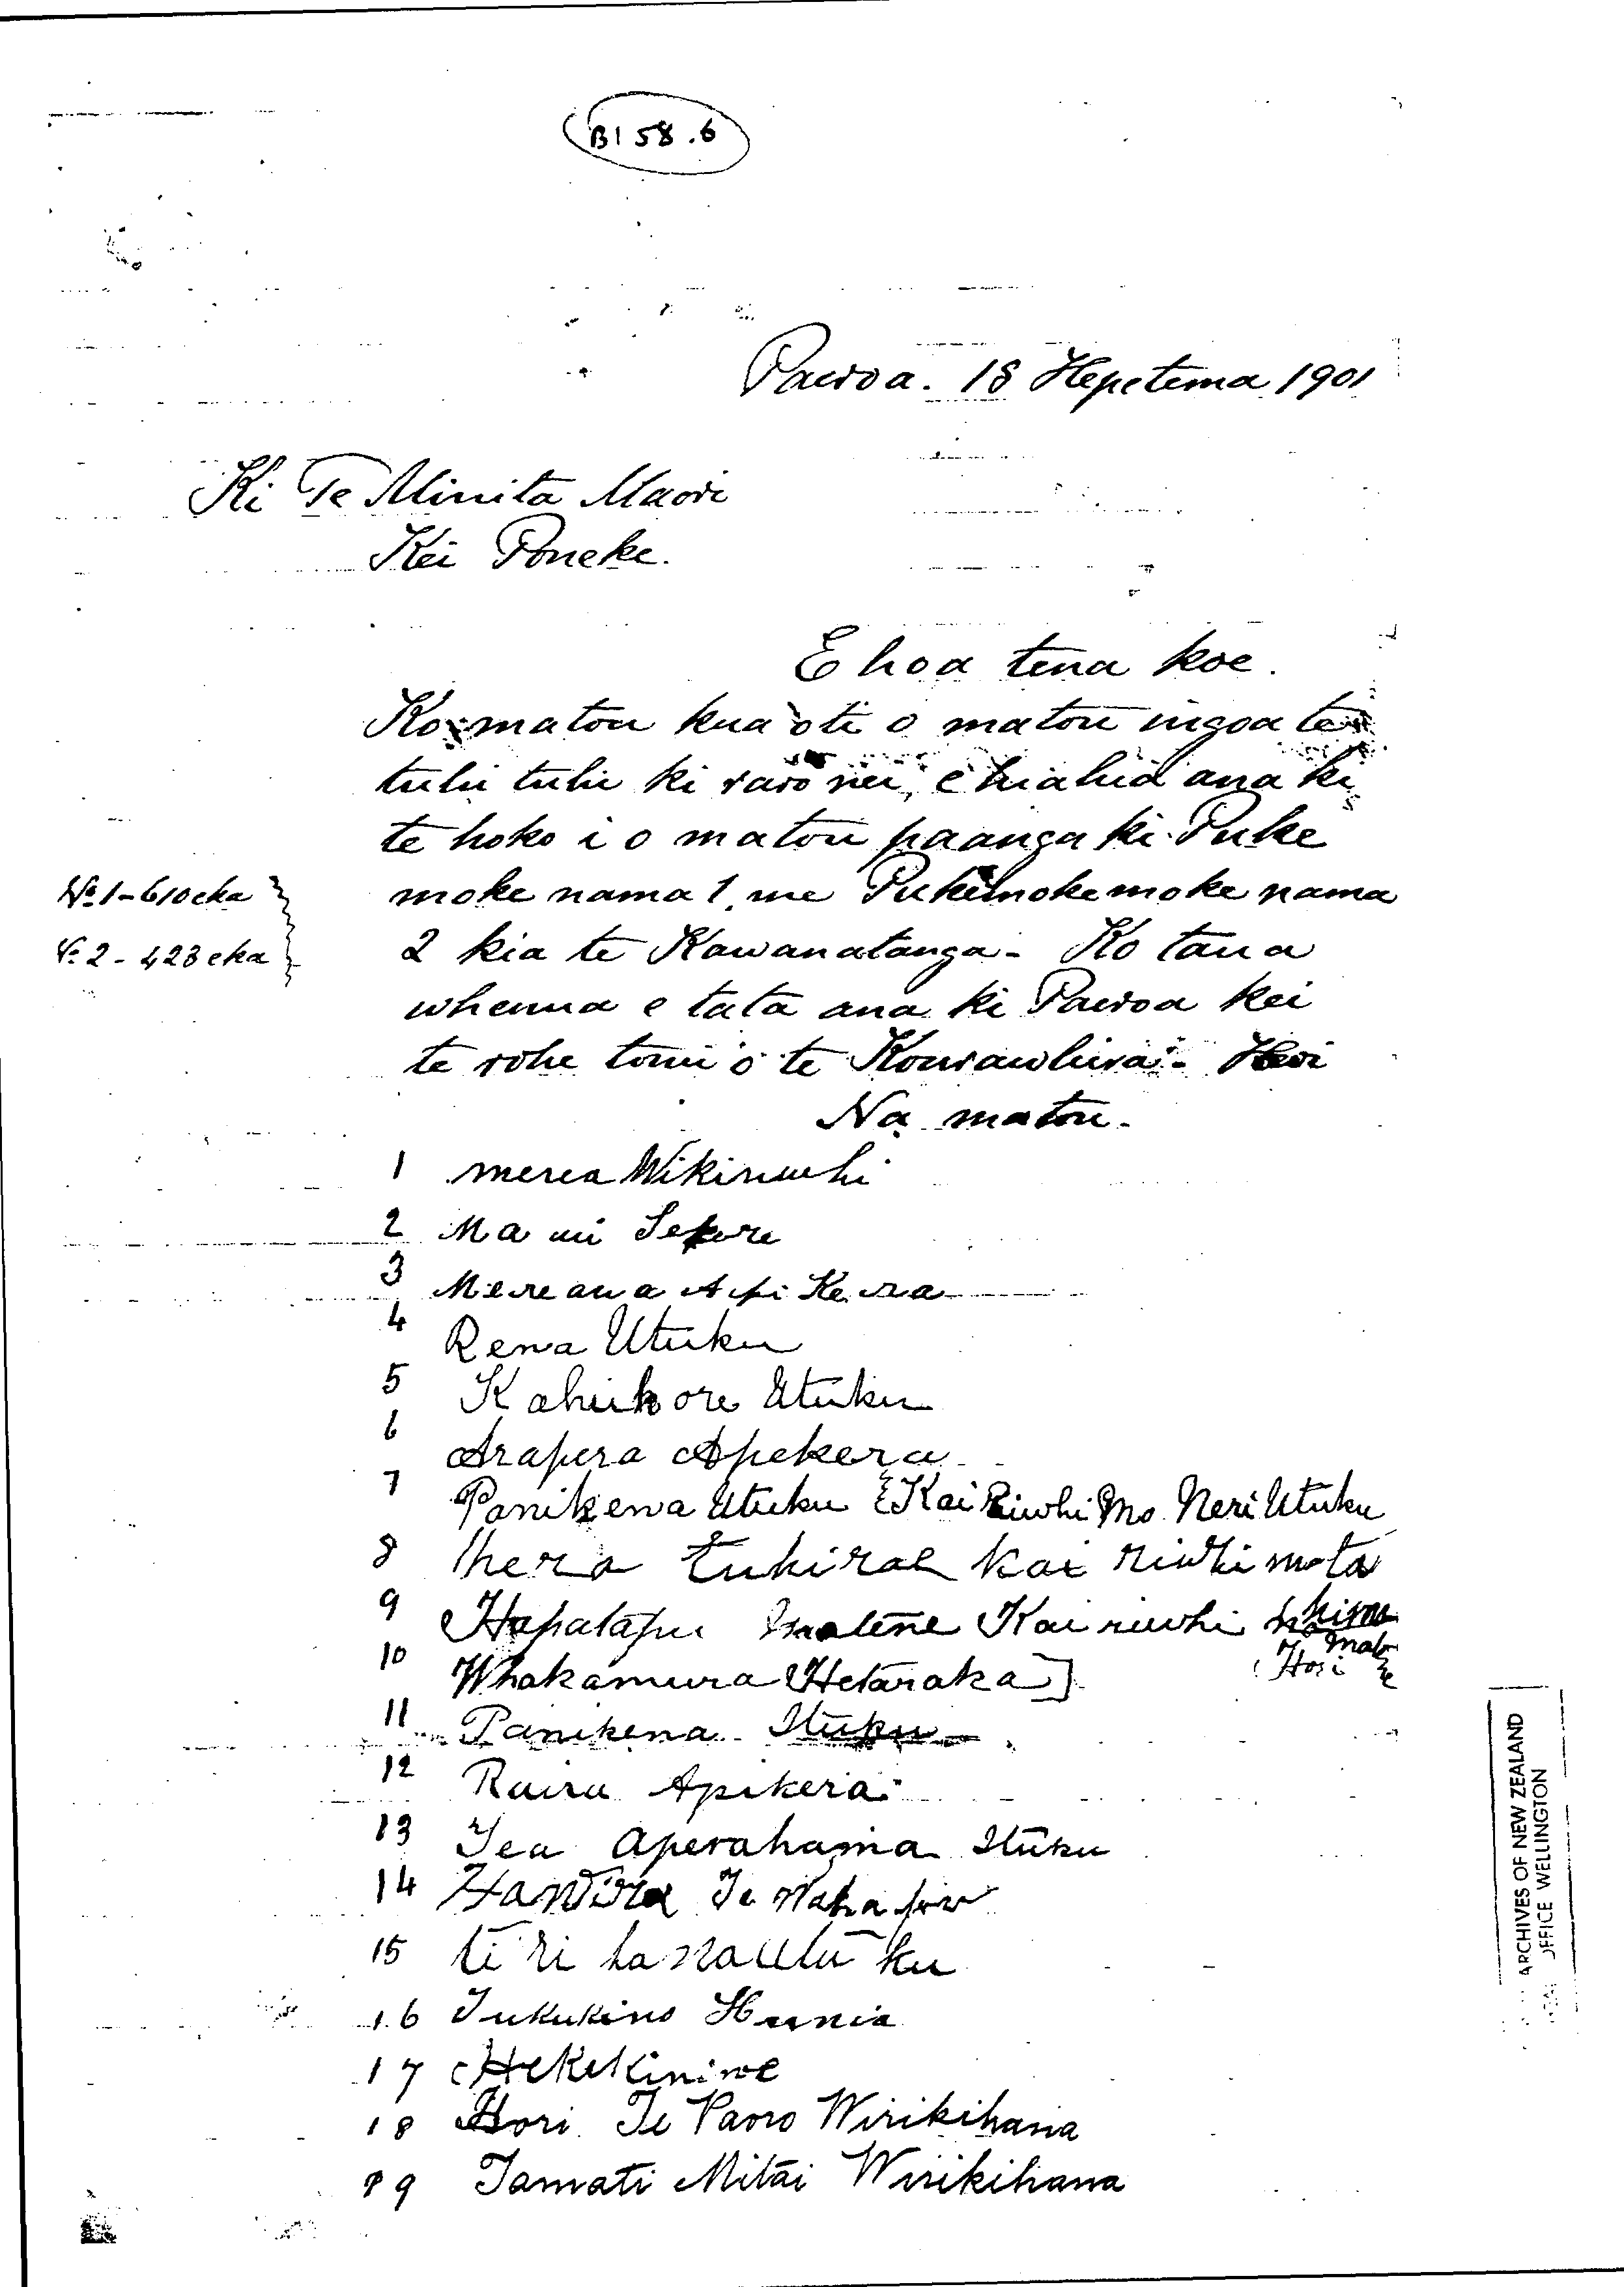 B158.6
Paeroa. 18 Hepetema 1901
Ki Te Minita Maori
Kei Poneke.
E hoa tena koe.
Ko matou kua oti o matou ingoa te
tuhi tuhi ki raro nei, e hiahia ana ki
te hoko i o matou paanga ki Puke
moke nama 1, me Pukemokemoke nama
No 1 - 610 eka
2 kia te Kawanatanga - Ko taua
No 2 - 423 eka
whenua e tata ana ki Paeroa kei
te rohe tonu o te Kourauhira - Heoi
Na matou.
1 merea Wikiriwhi
2 Ma ui
3 Mereana Apikera
4 Rewa Utuku
5 Kahukore Utuku
6 Arapera Apekera
7 Panikena Utuku Kai Riiwhi Mo Neri Utuku
8 hera tukirae kai riiwhi mota
9 Hapatapu Kai riiwhi
Hori
10 Whakamura Hetaraka
11 Panikena Ituku
12 Raira Apikera
13 Tea Aperahama Ituku
14 Te
15 ti ri ha na utu ku
16 Tukukino Hunia
17 Hekekiniwe
18 Hori Te Paoro Wirikihana
19 Tamati Mitai Wirikihana
ARCHIVES OF NEW ZEALAND
OFFICE WELLINGTON